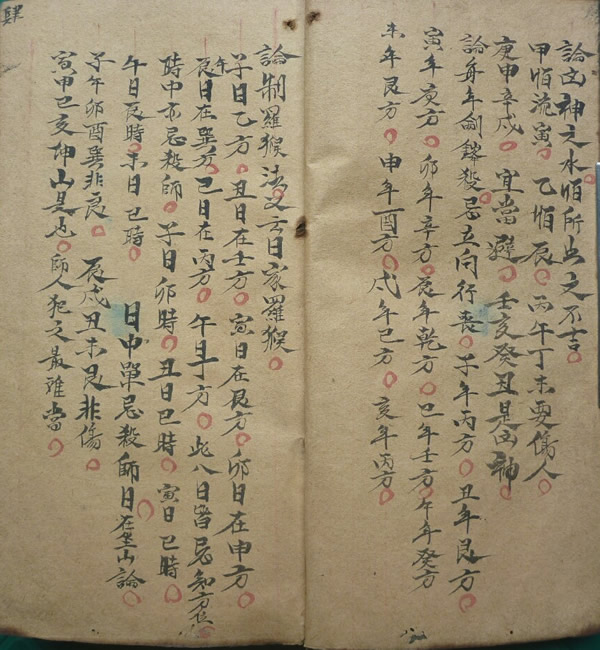 論凶神之水順所出之不吉
甲順流寅 乙順辰 丙午丁未要傷人
庚申辛戌 宜當避 壬亥癸丑是凶神
論每年劍鋒殺忌立向行喪 子年丙方 丑年艮方
寅年庚方 卯年辛方 辰年乾方 巳年壬方 午年癸方
未年艮方 申年酉方 戌年巳方 亥年丙方
論制羅猴法又云日家羅猴
子日乙方 丑日在壬方 寅日在艮方 卯日在申方
辰日在巽方 巳日在丙方 午日丁方 此八日皆忌
時中亦忌殺師 子日卯時 丑日巳時 寅日巳時
午日艮時 未日巳時 日中單忌殺師日在坐山論
子午卯酉巽非良 辰戌丑未艮非傷
寅甲巳亥坤山是也 師人犯之最難當
肆